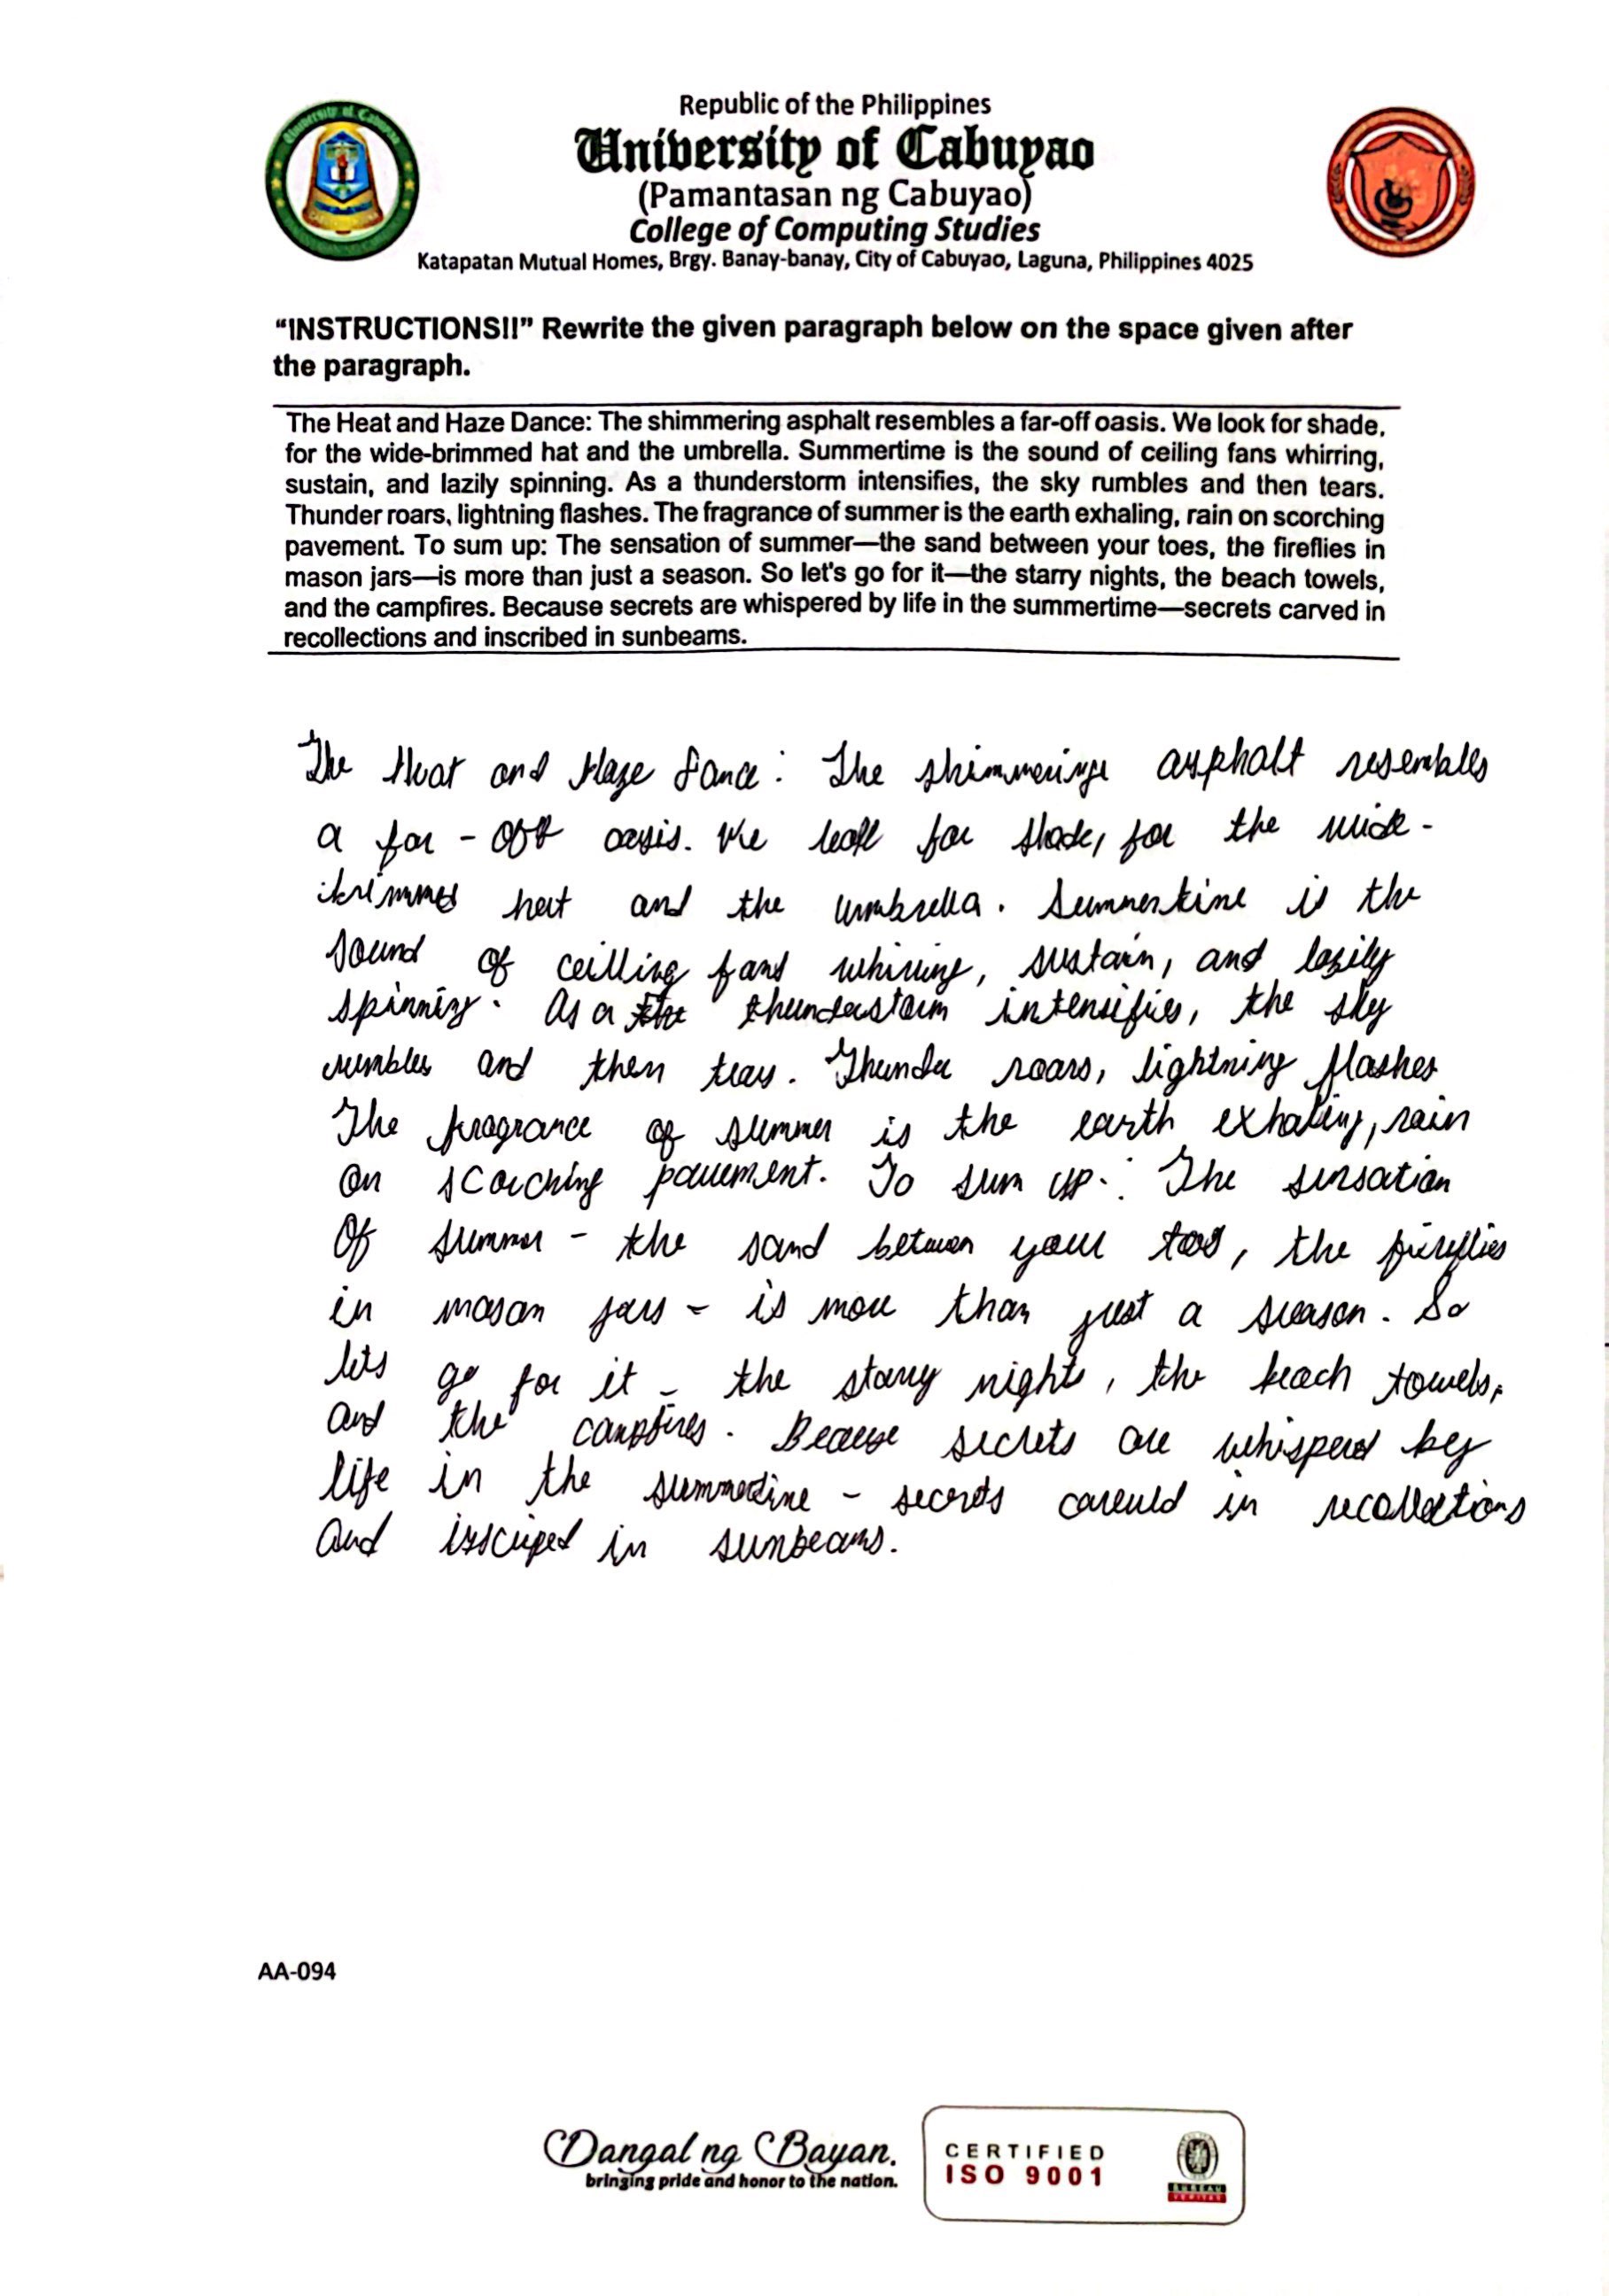 Republic of the Philippines
University of Cabuyao
(Pamantasan ng Cabuyao)
College of Computing Studies
Katapatan Mutual Homes, Brgy. Banay-banay, City of Cabuyao, Laguna, Philippines 4025
“INSTRUCTIONS!!” Rewrite the given paragraph below on the space given after
the paragraph.
The Heat and Haze Dance: The shimmering asphalt resembles a far-off oasis. We look for shade,
for the wide-brimmed hat and the umbrella. Summertime is the sound of ceiling fans whirring,
sustain, and lazily spinning. As a thunderstorm intensifies, the sky rumbles and then tears.
Thunder roars, lightning flashes. The fragrance of summer is the earth exhaling, rain on scorching
pavement. To sum up: The sensation of summer—the sand between your toes, the fireflies in
mason jars—is more than just a season. So let's go for it—the starry nights, the beach towels,
and the campfires. Because secrets are whispered by life in the summertime—secrets carved in
recollections and inscribed in sunbeams.
The Heat and Haze Dance: The shimmering asphalt resembles
a far - off oasis. We look for shade, for the wide-
brimmed hat and the umbrella. Summertime is the
sound of ceilling fans whirring, sustain, and lazily
spinning. As a thunderstorm intensifies, the sky
rumbles and then tears. Thunder roars, lightning flashes
The fragrance of summer is the earth exhaling, rain
on scorching pavement. To sum up: The sensation
Of summer - the sand between your toes, the fireflies
in mason jars - is more than just a season. So
lets go for it - the starry nights, the beach towels,
and the campfires. Because secrets are whispered by
life in the summertime - secrets in recollections
and in sunbeams.
AA-094
Dangal ng Bayan.
bringing pride and honor to the nation.
CERTIFIED
ISO 9001
BUREAU
VERITAS